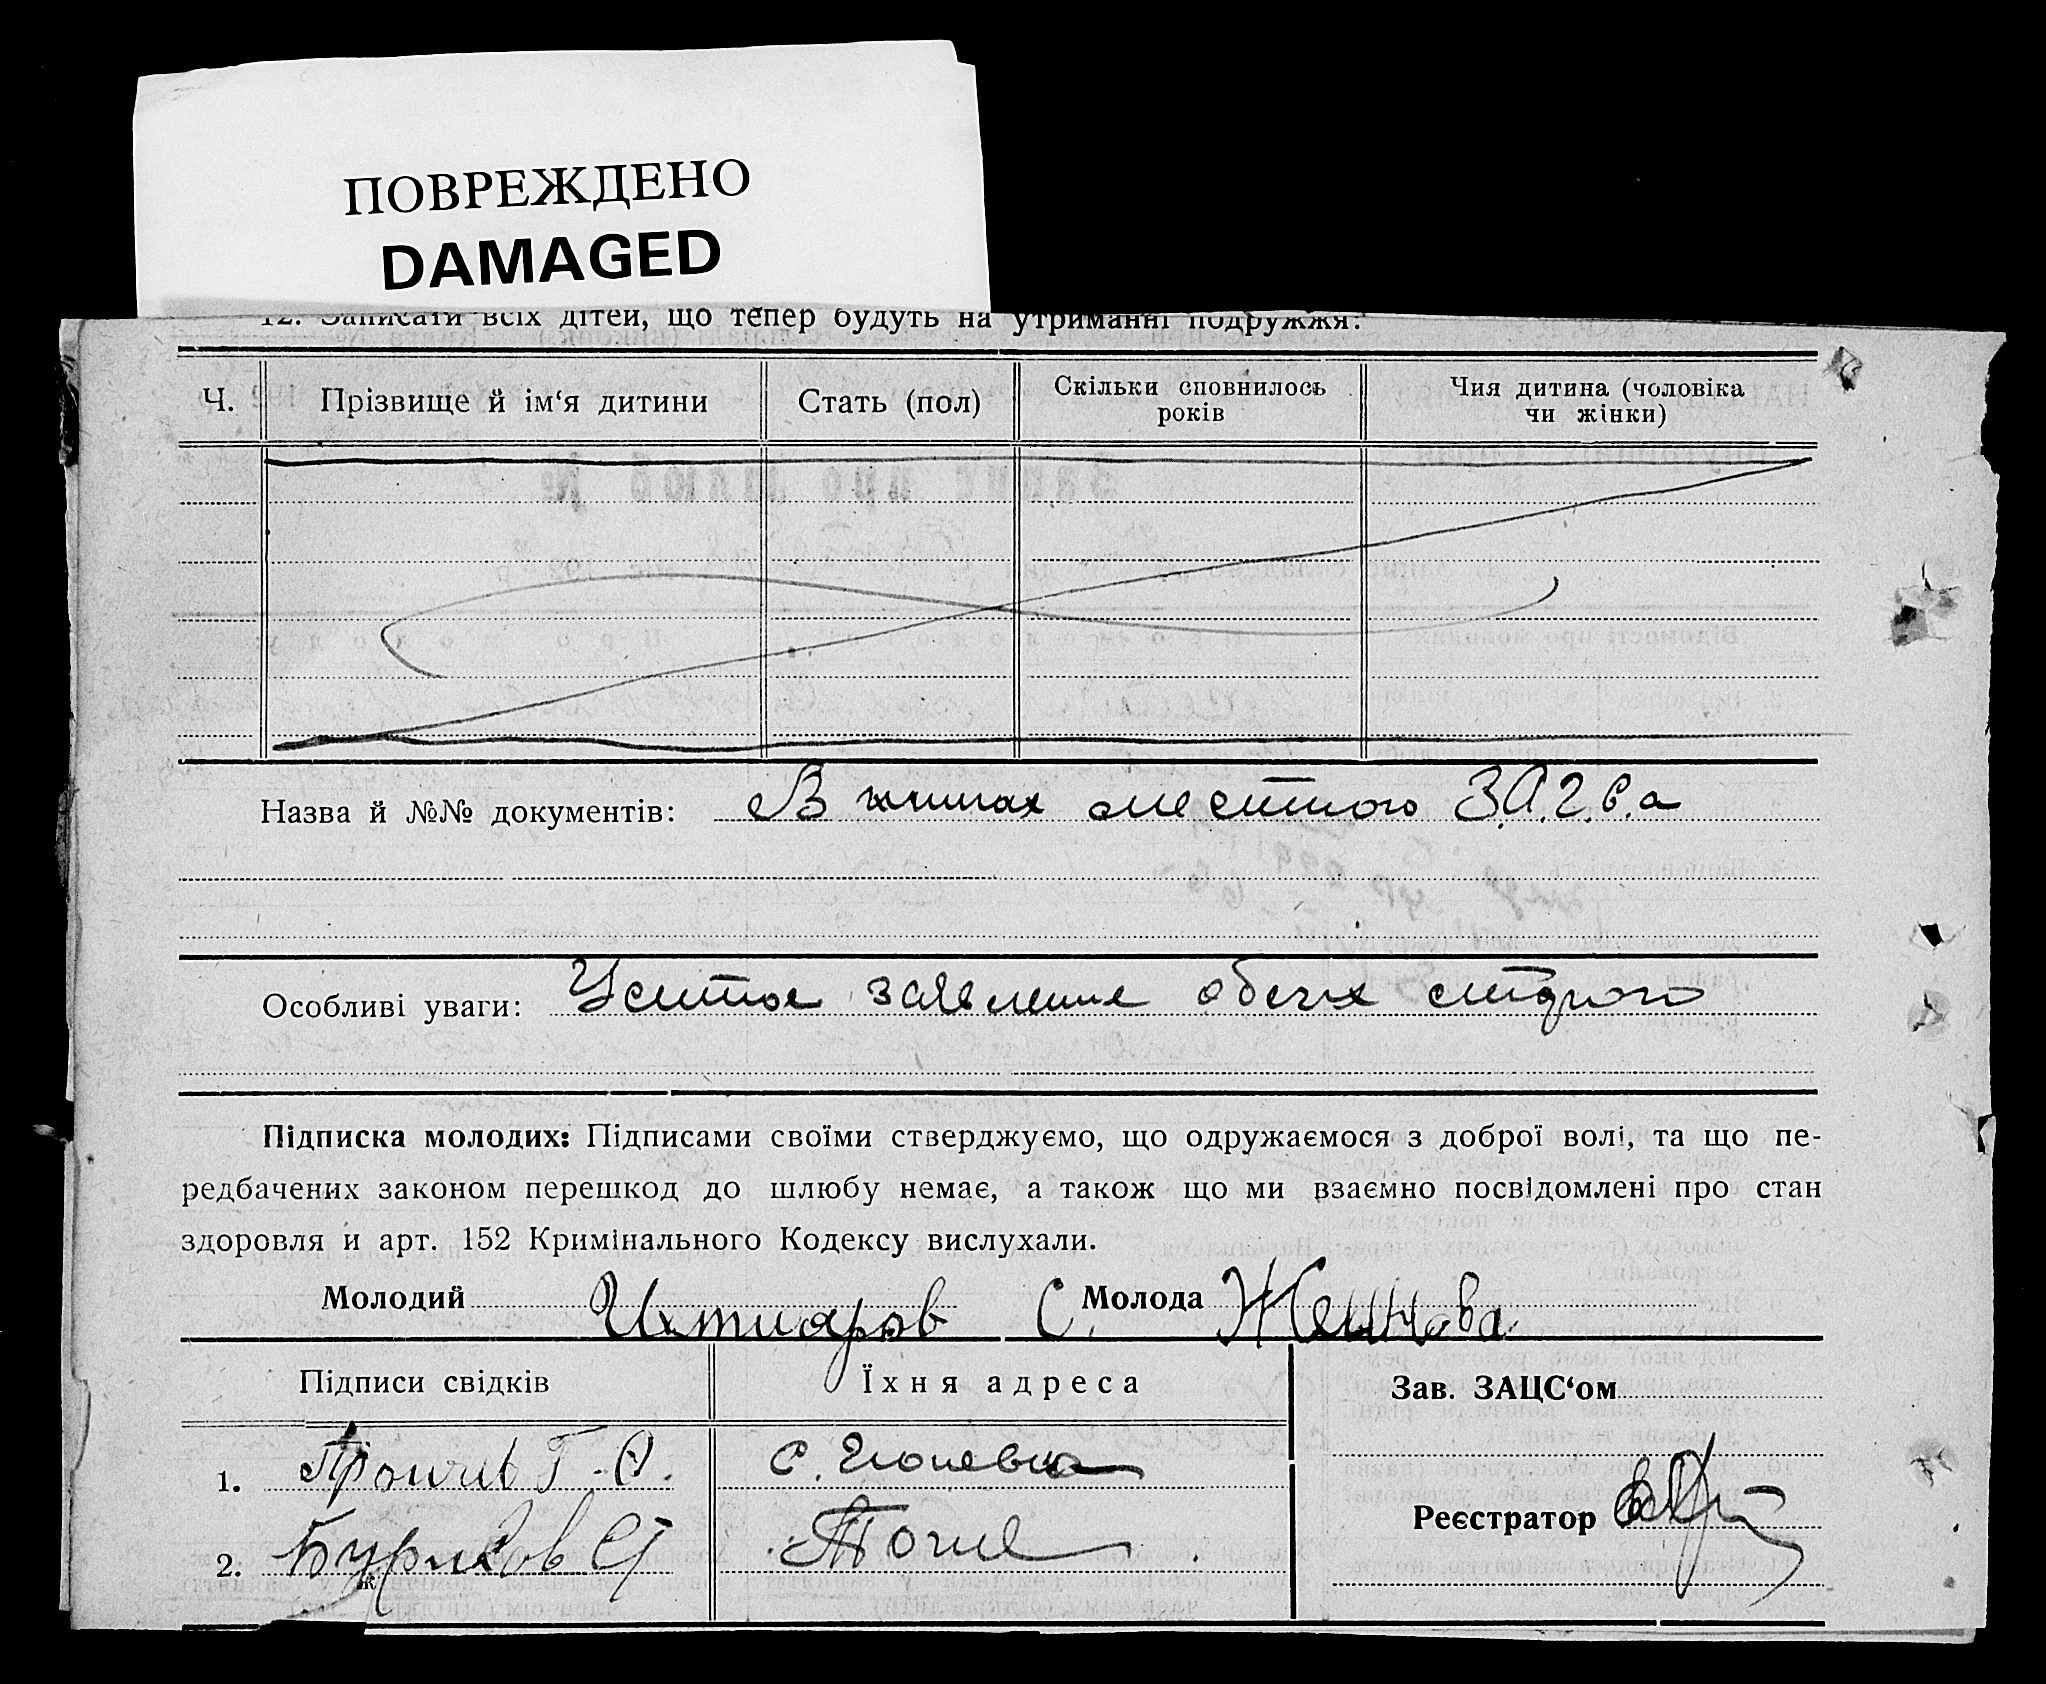 ПОВРЕЖДЕНО
DAMAGED
12. Записати всіх дітей, що тепер будуть на утриманні подружжя:
Ч. Прізвище й ім‘я дитини Стать (пол) Скільки сповнилось років Чия дитина (чоловіка чи жінки)
Назва й №№ документів: В книгах местного З.А.Г.С.а
Особливі уваги: Устное заявление обеих
Підписка молодих: Підписами своїми стверджуємо, що одружаємося з доброї волі, та що пе-
редбачених законом перешкод до шлюбу немає, а також що ми взаємно посвідомлені про стан
здоровля й арт. 152 Кримінального Кодексу вислухали.
Молодий Ихтиаров С. Молода
Підписи свідків Їхня адреса Зав. ЗАЦС‘ом
1. с.
2. Тоже
Реєстратор